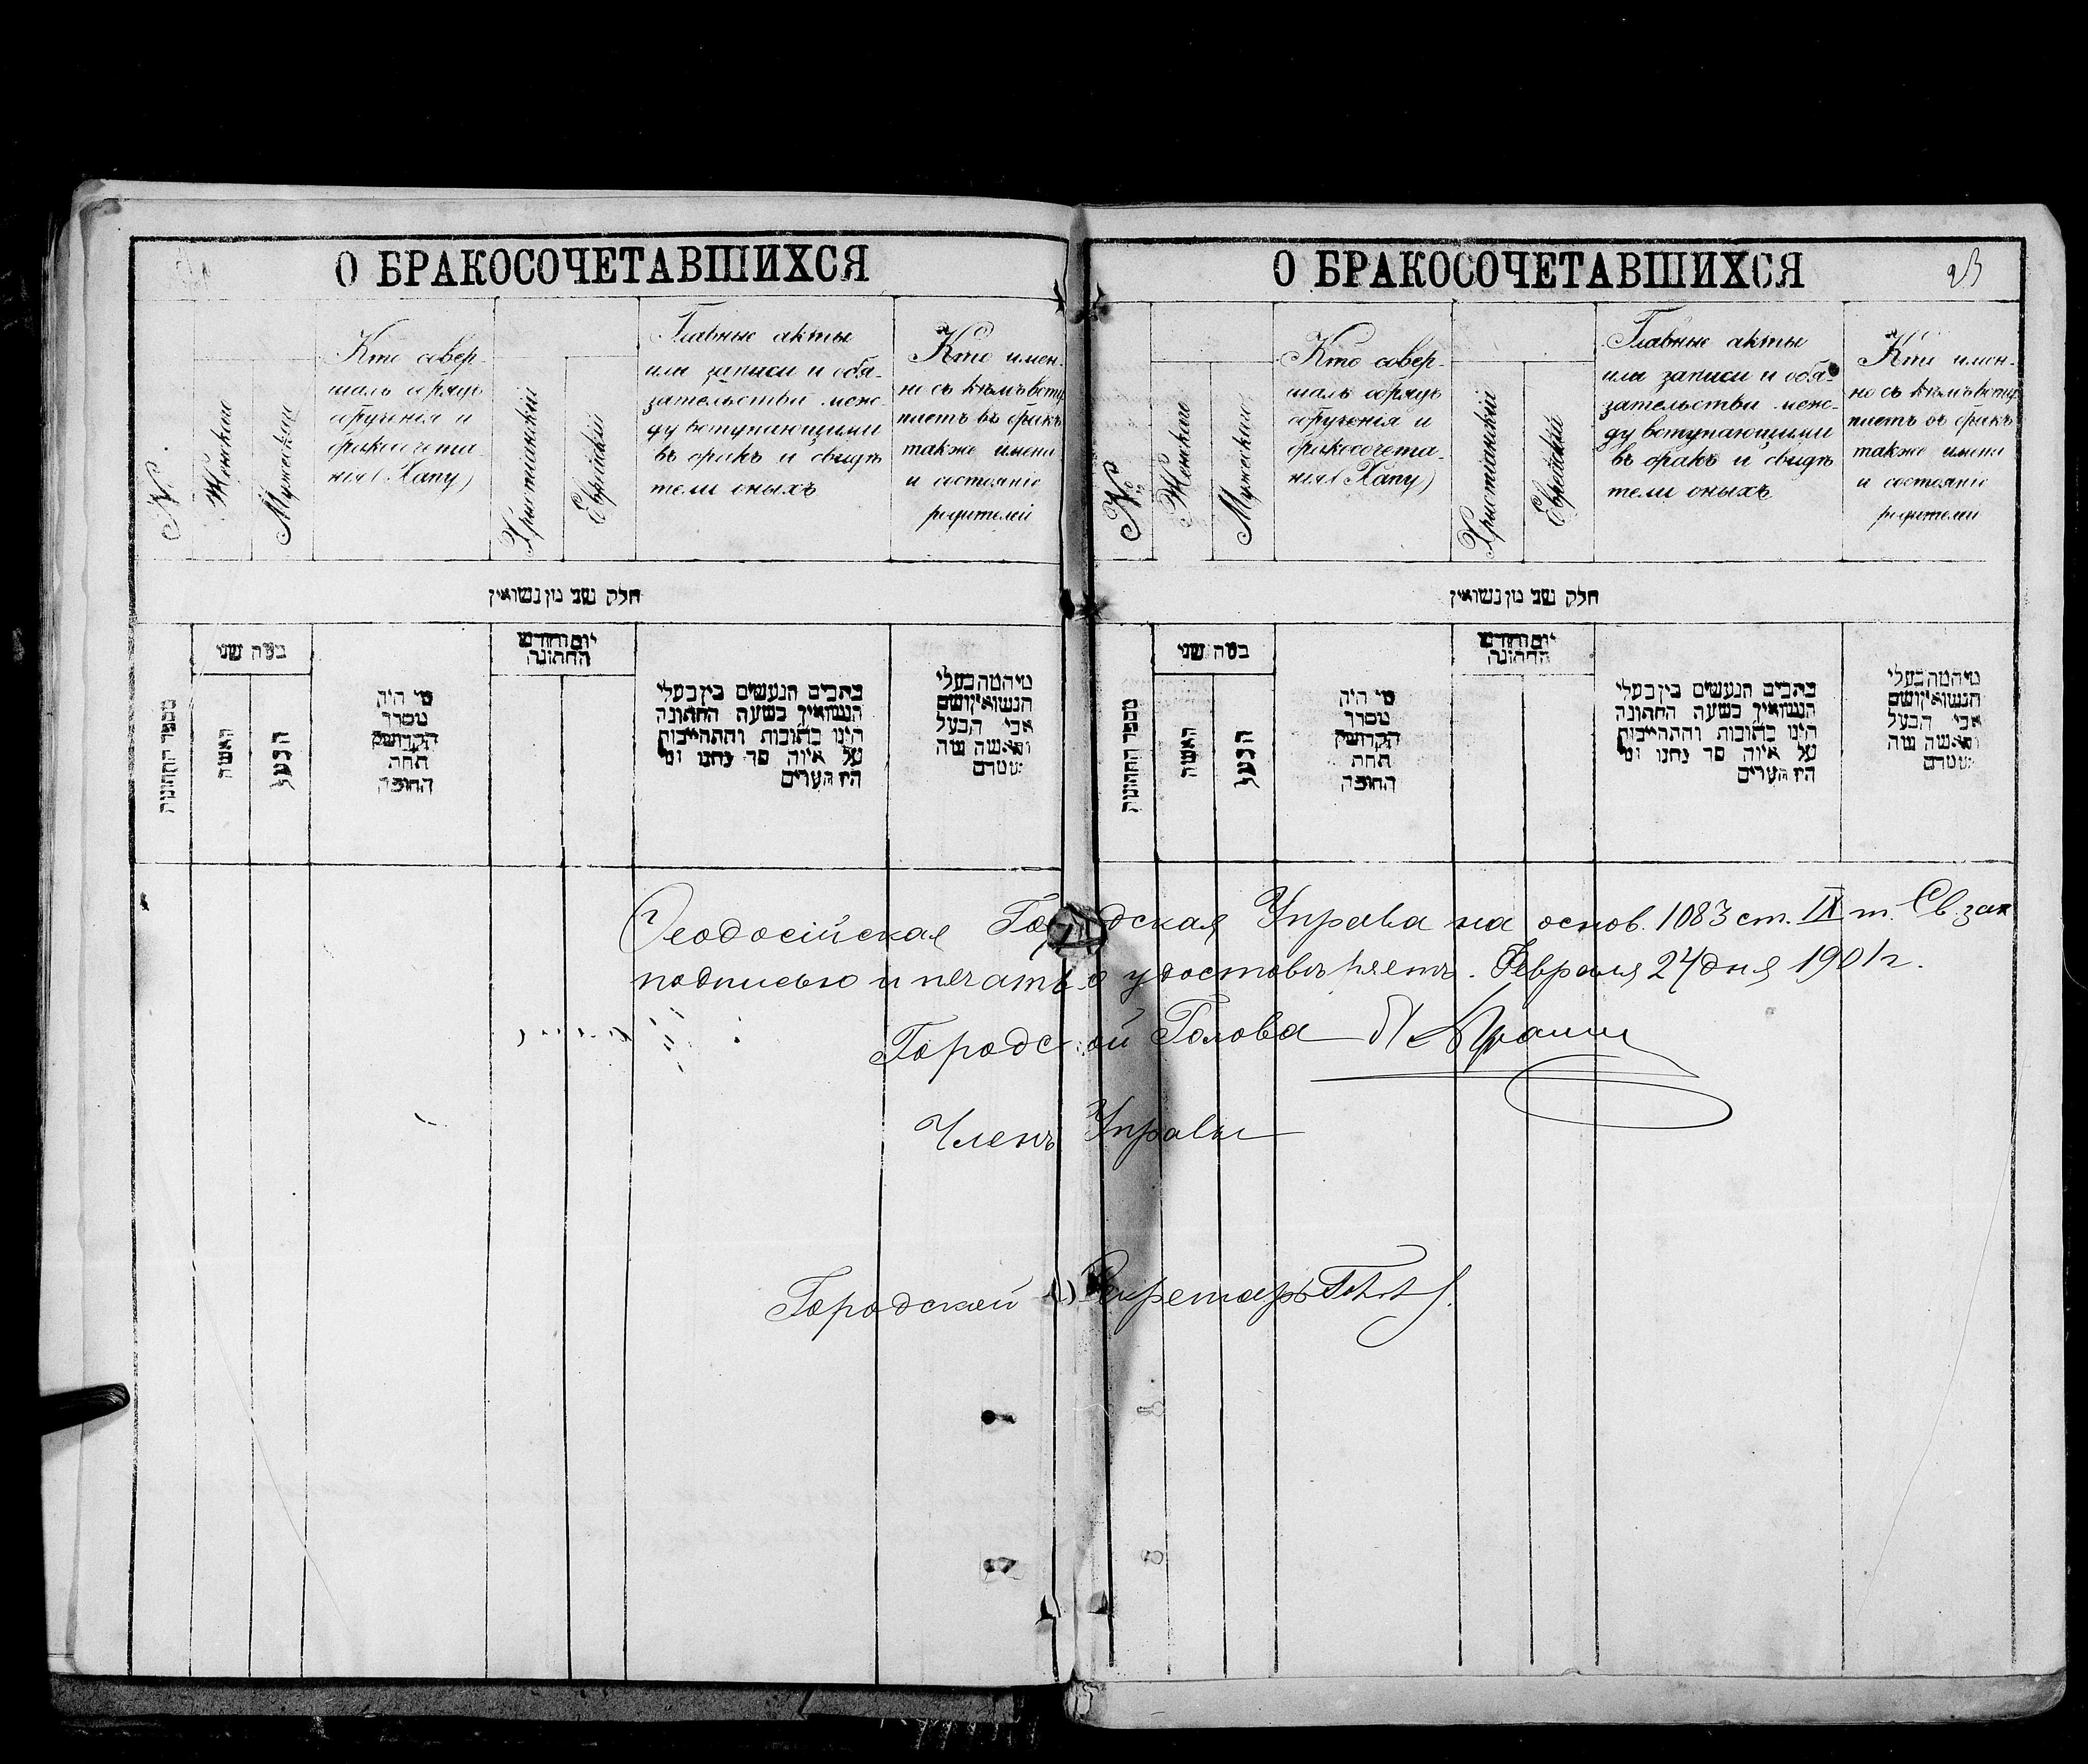 О БРАКОСОЧЕТАВШИХСЯ
№
Женскаго
Мужескаго
Кто совер-
шалъ обрядъ
обрученія и
бракосочета-
нія (Хапу)
Христіанскій
Еврейскій
Главные акты
или записи и обя-
зательства меж-
ду вступающими
въ бракъ и свидѣ
тели оныхъ
Кто имен-
но съ кѣмъ всту
паетъ въ бракъ
также имена
и состояніе
родителей
חלק שני מן נשואין
מספר החתונות
כמה שני
האשה
הבעל
מי היה
מסדר
הקדושין
תחת
החופה
יום וחודש
החתונה
כתבים הנעשים בין בעלי
הנשואין בשעה החתונה
היינו כתובות והתחייבות
על איזה סך
מי המה בעלי
הנשואין ושם
אבי הבעל
והאשה
О БРАКОСОЧЕТАВШИХСЯ
23
№
Женскаго
Мужескаго
Кто совер-
шалъ обрядъ
обрученія и
бракосочета-
нія (Хапу)
Христіанскій
Еврейскій
Главные акты
или записи и обя-
зательства меж-
ду вступающими
въ бракъ и свидѣ
тели оныхъ
Кто имен-
но съ кѣмъ всту
паетъ въ бракъ
также имена
и состояніе
родителей
חלק שני מן נשואין
מספר החתונות
כמה שני
האשה
הבעל
מי היה
מסדר
הקדושין
תחת
החופה
יום וחודש
החתונה
כתבים הנעשים בין בעלי
הנשואין בשעה החתונה
היינו כתובות והתחייבות
על איזה סך
מי המה בעלי
הנשואין ושם
אבי הבעל
והאשה
Ѳеодосійская Городская Управа на основ. 1083 ст. IX т. Св. зак
подписью и печатью удостовѣряетъ. Февраля 24 дня 1901 г.
Городской Голова
Членъ Управы
Городской Секретарь